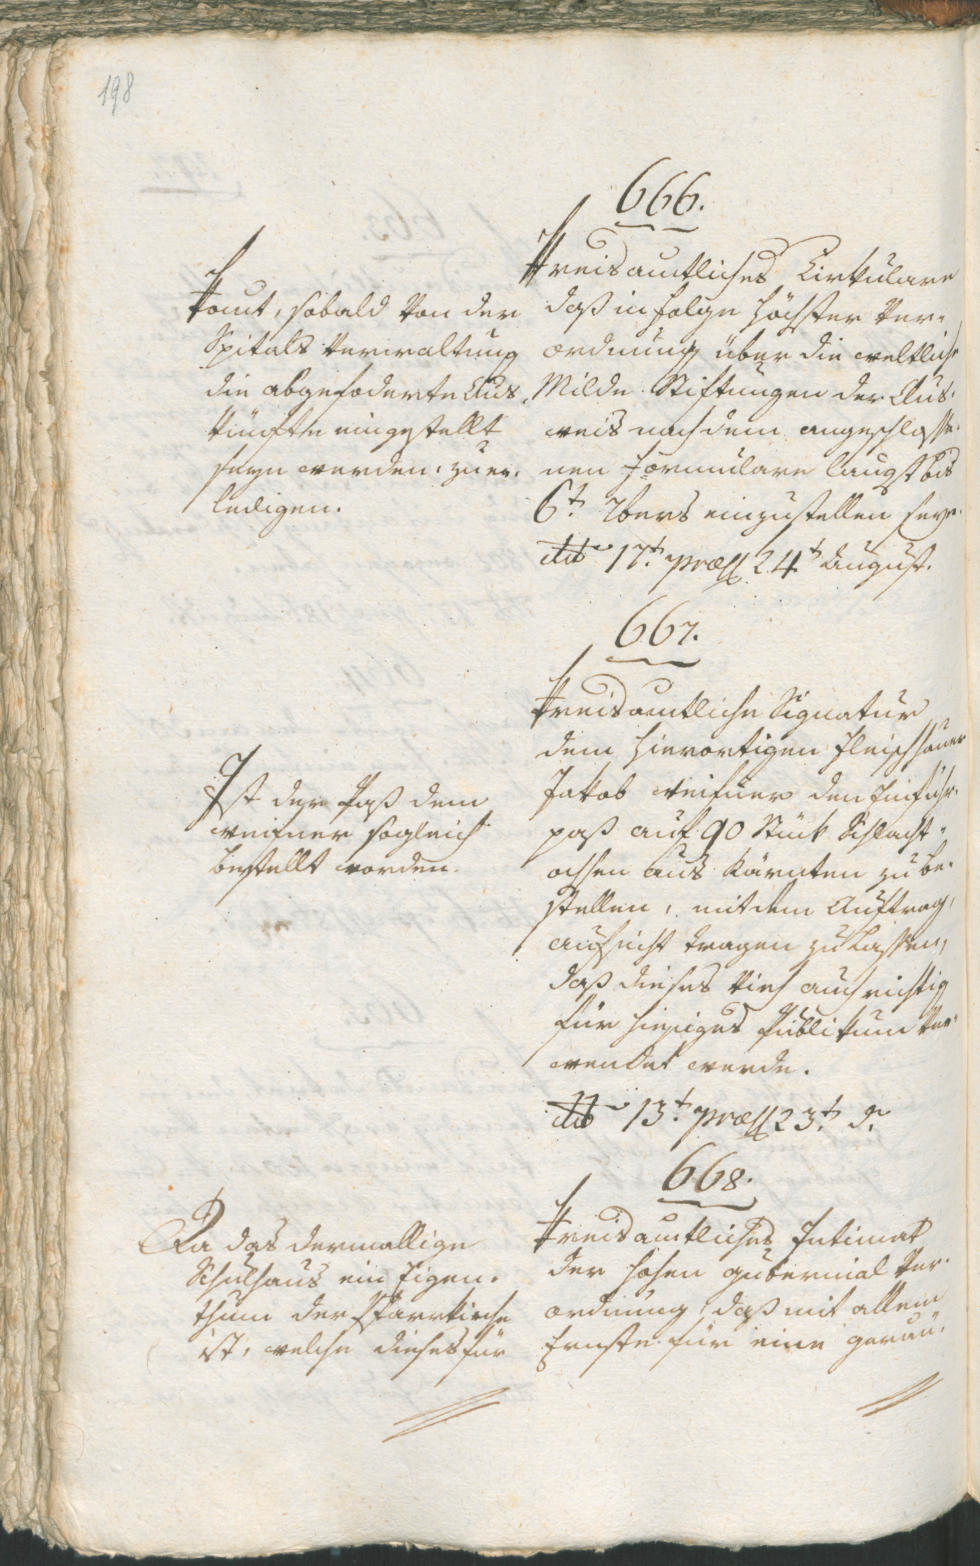 198
666.
Kreisamtliches Cirkulare
daß in Folge höchster Ver-
ordnung über die weltliche
Milde Stiftungen der Aus-
weis nach dem angeschlosse-
nen Formulare längst bis
6t 7bers einzustellen seye.
dto 17t. præs 24t August.
Komt, sobald von der
Spitals Verwaltung
die abgefoderte Aus-
künfte eingestellt
seyn werden, zu er-
ledigen.
667.
Kreisamtliche Signatur
dem hierortigen Fleischhauer
Jakob Weixner den Einfuhr-
paß auf 90 Stück Schlacht-
ochsen aus Kärnten zu be-
stellen, mit dem Auftrag,
aufsicht tragen zu lassen,
daß dieses Vieh auch richtig
für hiesiges Publikum ver-
wendet werde.
dto 13t. præs 23t. d.
Ist der Paß dem
Weixner sogleich
bestellt worden.
668.
Kreisamtliches Intimat
der hohen gubernial Ver-
ordnung, daß mit allem
Ernste für eine geräu-
Da das dermallige
Schulhaus ein Eigen-
thum der Pfarrkirche
ist, welche dieses für